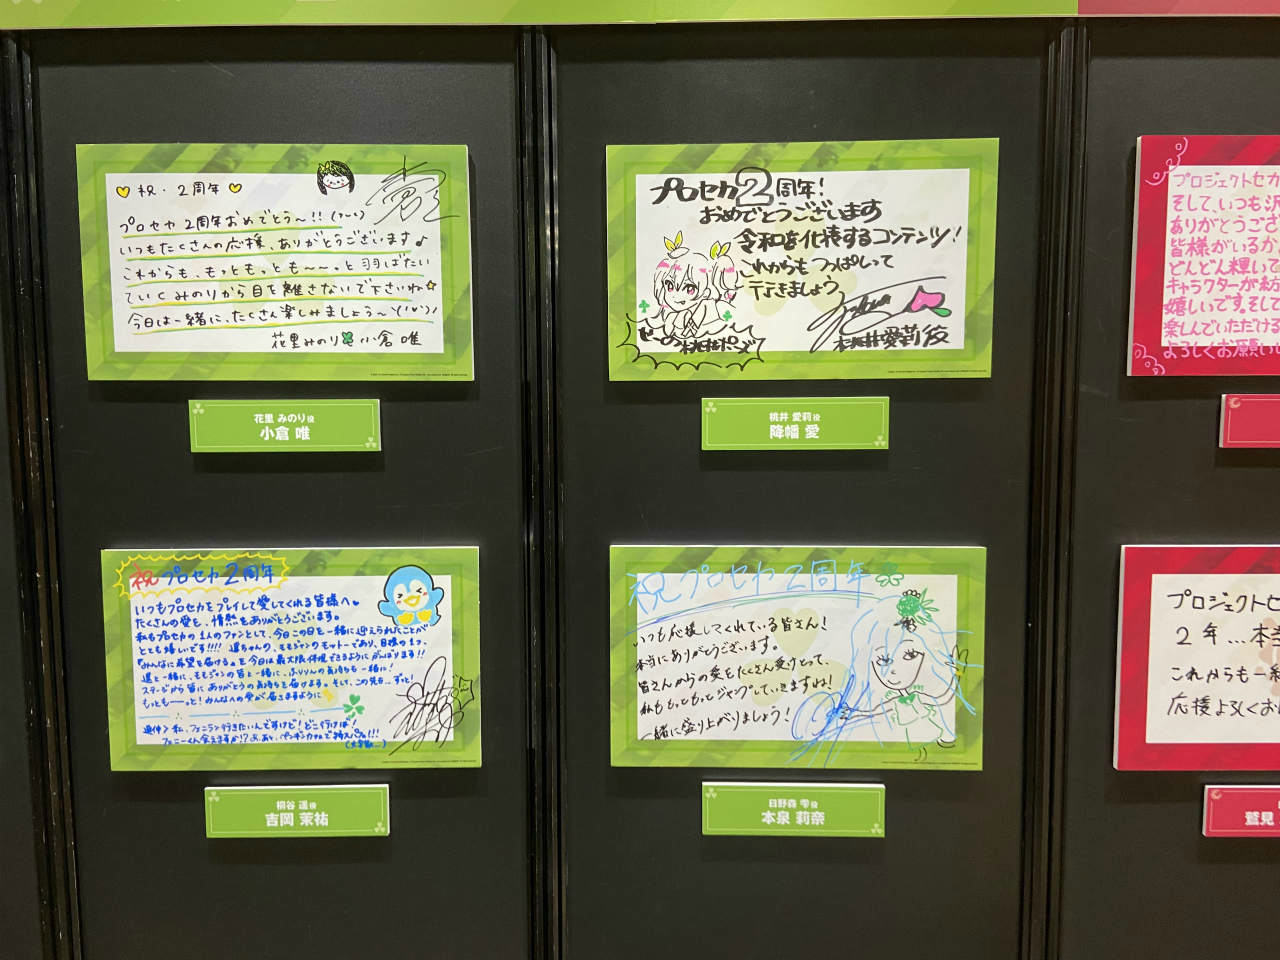 祝・2周年
プロセカ2周年おめでとう〜!!
いつもたくさんの応援、ありがとうございます♪
これからも、もっともっとも〜〜っと羽ばたい
ていくみのりから目を離さないで下さいね☆
今日は一緒に、たくさん楽しみましょう〜
花里みのり 小倉唯
花里 みのり役
小倉 唯
プロセカ2周年!
おめでとうございます
令和を代表するコンテンツ!
これからもつっぱしって
行きましょう
桃井愛莉役
桃井 愛莉役
降幡 愛
祝 プロセカ2周年
いつもプロセカをプレイして愛してくれる皆様へ
たくさんの愛を、情熱をありがとうございます。
私もプロセカの1人のファンとして、今日この日を一緒に迎えられたことが
とても嬉しいです!!!! 遥ちゃんの、モモジャンのモットーであり、目標の1つ
『みんなに希望を届ける』を今日は最大限体現できるようにがんばります!!
遥と一緒に、モモジャンの皆と一緒に、
ステージから皆にありがとうの気持ちを届けます。そして、この先も…ずっと!
もっともーーっと! みんなへの愛が届きますように
桐谷 遥役
吉岡 茉祐
祝 プロセカ2周年
いつも応援してくれている皆さん!
本当にありがとうございます。
皆さんからの愛をたくさん受けとって、
私ももっともっとジャンプしていきますね!
一緒に盛り上がりましょう!
日野森 雫役
本泉 莉奈
プロジェクトセカ
そして、いつも沢
ありがとうござ
皆様がいるか
どんどん輝いて
キャラクターが紡
嬉しいです。そして
楽しんでいただける
よろしくお願いし
プロジェクトセ
2年…本当
これからも一緒
応援よろしくお
鷲見